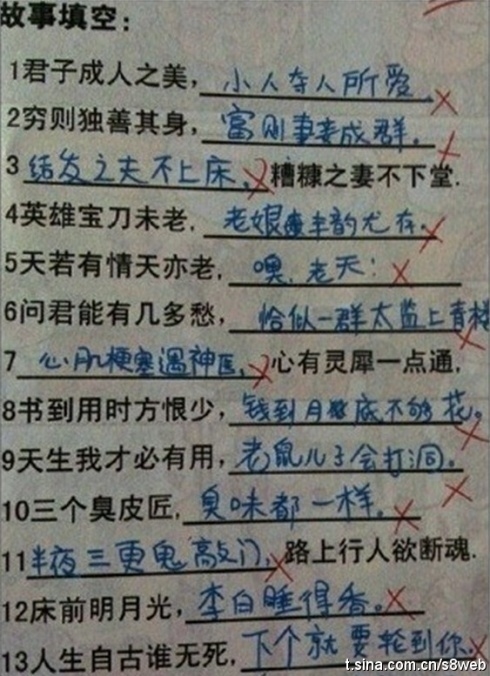 故事填空：
1君子成人之美，小人夺人所爱。
2穷则独善其身，富则妻妾成群。
3结发之夫不上床，糟糠之妻不下堂.
4英雄宝刀未老，老娘丰韵尤存。
5天若有情天亦老，噢，老天！
6问君能有几多愁，恰似一群太监上青楼
7心肌梗塞遇神医，心有灵犀一点通，
8书到用时方恨少，钱到月底不够花。
9天生我才必有用，老鼠儿子会打洞。
10三个臭皮匠，臭味都一样。
11半夜三更鬼敲门，路上行人欲断魂.
12床前明月光，李白睡得香。
13人生自古谁无死，下个就要轮到你.
t.sina.com.cn/s8web